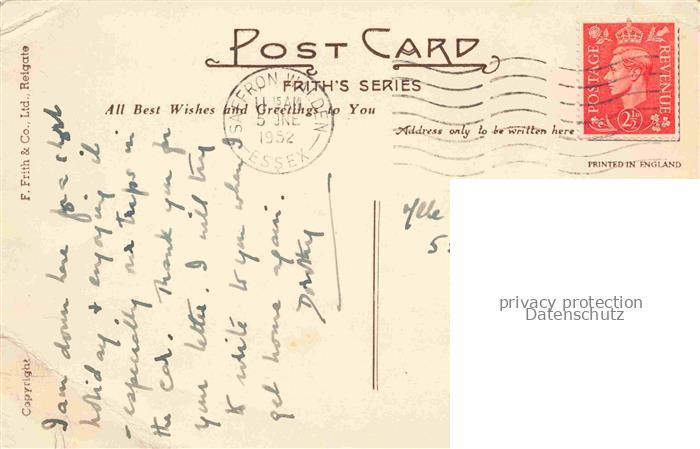 POST CARD
FRITH'S SERIES
All Best Wishes and Greetings to You
SAFFRON WALDEN
11 15 AM
5 JNE
1952
ESSEX
POSTAGE
REVENUE
2½D
Address only to be written here
PRINTED IN ENGLAND
F. Frith & Co., Ltd., Reigate
Copyright
I am down here for a short
holiday & enjoying it
- especially our trips in
the car. Thank you for
your letter. I will try
to write to you when I
get home again.
Dorothy
Mlle
privacy protection
Datenschutz